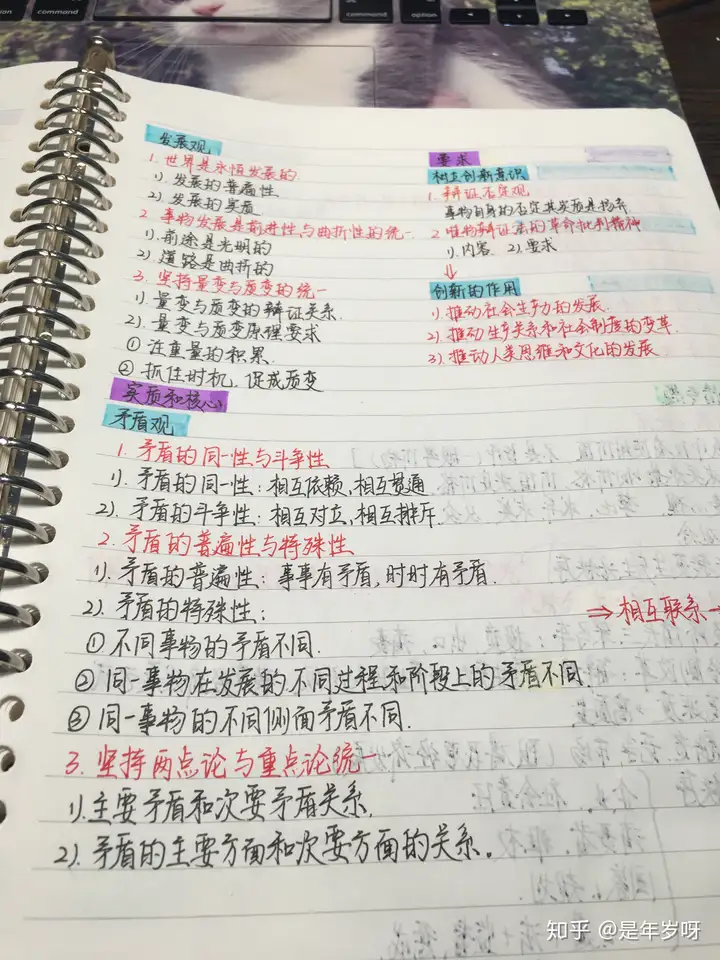 command
option
command
发展观
1. 世界是永恒发展的
1). 发展的普遍性
2). 发展的实质
2. 事物发展是前进性与曲折性的统一
1). 前途是光明的
2). 道路是曲折的
3. 坚持量变与质变的统一
1). 量变与质变的辩证关系.
2). 量变与质变原理要求
① 注重量的积累.
② 抓住时机, 促成质变
要求
树立创新意识
1. 辩证否定观
事物自身的否定其实质是扬弃
2. 唯物辩证法的革命批判精神
1). 内容. 2). 要求
↓
创新的作用
1). 推动社会生产力的发展.
2). 推动生产关系和社会制度的变革.
3). 推动人类思维和文化的发展
实质和核心
矛盾观
1. 矛盾的同一性与斗争性
1). 矛盾的同一性: 相互依赖, 相互贯通
2). 矛盾的斗争性: 相互对立, 相互排斥.
2. 矛盾的普遍性与特殊性
1). 矛盾的普遍性: 事事有矛盾, 时时有矛盾.
2). 矛盾的特殊性:
⇒ 相互联系 →
① 不同事物的矛盾不同.
② 同一事物在发展的不同过程和阶段上的矛盾不同.
③ 同一事物的不同侧面矛盾不同.
3. 坚持两点论与重点论统一
1). 主要矛盾和次要矛盾关系.
2). 矛盾的主要方面和次要方面的关系.
知乎 @是年岁呀